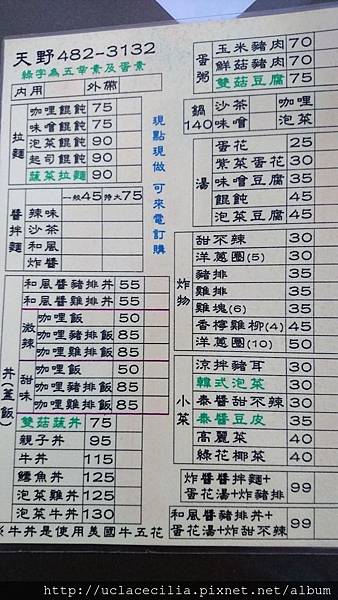 天野482-3132
綠字為五辛素及蛋素
內用 外帶
拉麵
咖哩餛飩 75
味噌餛飩 75
泡菜餛飩 90
起司餛飩 90
蔬菜拉麵 90
一般45 特大75
醬拌麵
辣味
沙茶
和風
炸醬
丼(蓋飯)
和風醬豬排丼 55
和風醬雞排丼 55
微辣
咖哩飯 50
咖哩豬排飯 85
咖哩雞排飯 85
甜味
咖哩飯 50
咖哩豬排飯 85
咖哩雞排飯 85
雙菇蔬丼 75
親子丼 95
牛丼 115
鱈魚丼 125
泡菜雞丼 125
泡菜牛丼 130
※牛丼是使用美國牛五花
現點現做 可來電訂購
蛋粥
玉米豬肉 70
鮮菇豬肉 70
雙菇豆腐 75
鍋140
沙茶 咖哩
味噌 泡菜
湯
蛋花 25
紫菜蛋花 30
味噌豆腐 35
餛飩 45
泡菜豆腐 45
炸物
甜不辣 30
洋蔥圈(5) 30
豬排 35
雞排 35
雞塊(6) 35
香檸雞柳(4) 45
洋蔥圈(10) 50
小菜
涼拌豬耳 30
韓式泡菜 30
泰醬甜不辣 30
泰醬豆皮 35
高麗菜 40
綠花椰菜 40
炸醬醬拌麵+
蛋花湯+炸豬排 99
和風醬豬排丼+
蛋花湯+炸甜不辣 99
http://uclacecilia.pixnet.net/album